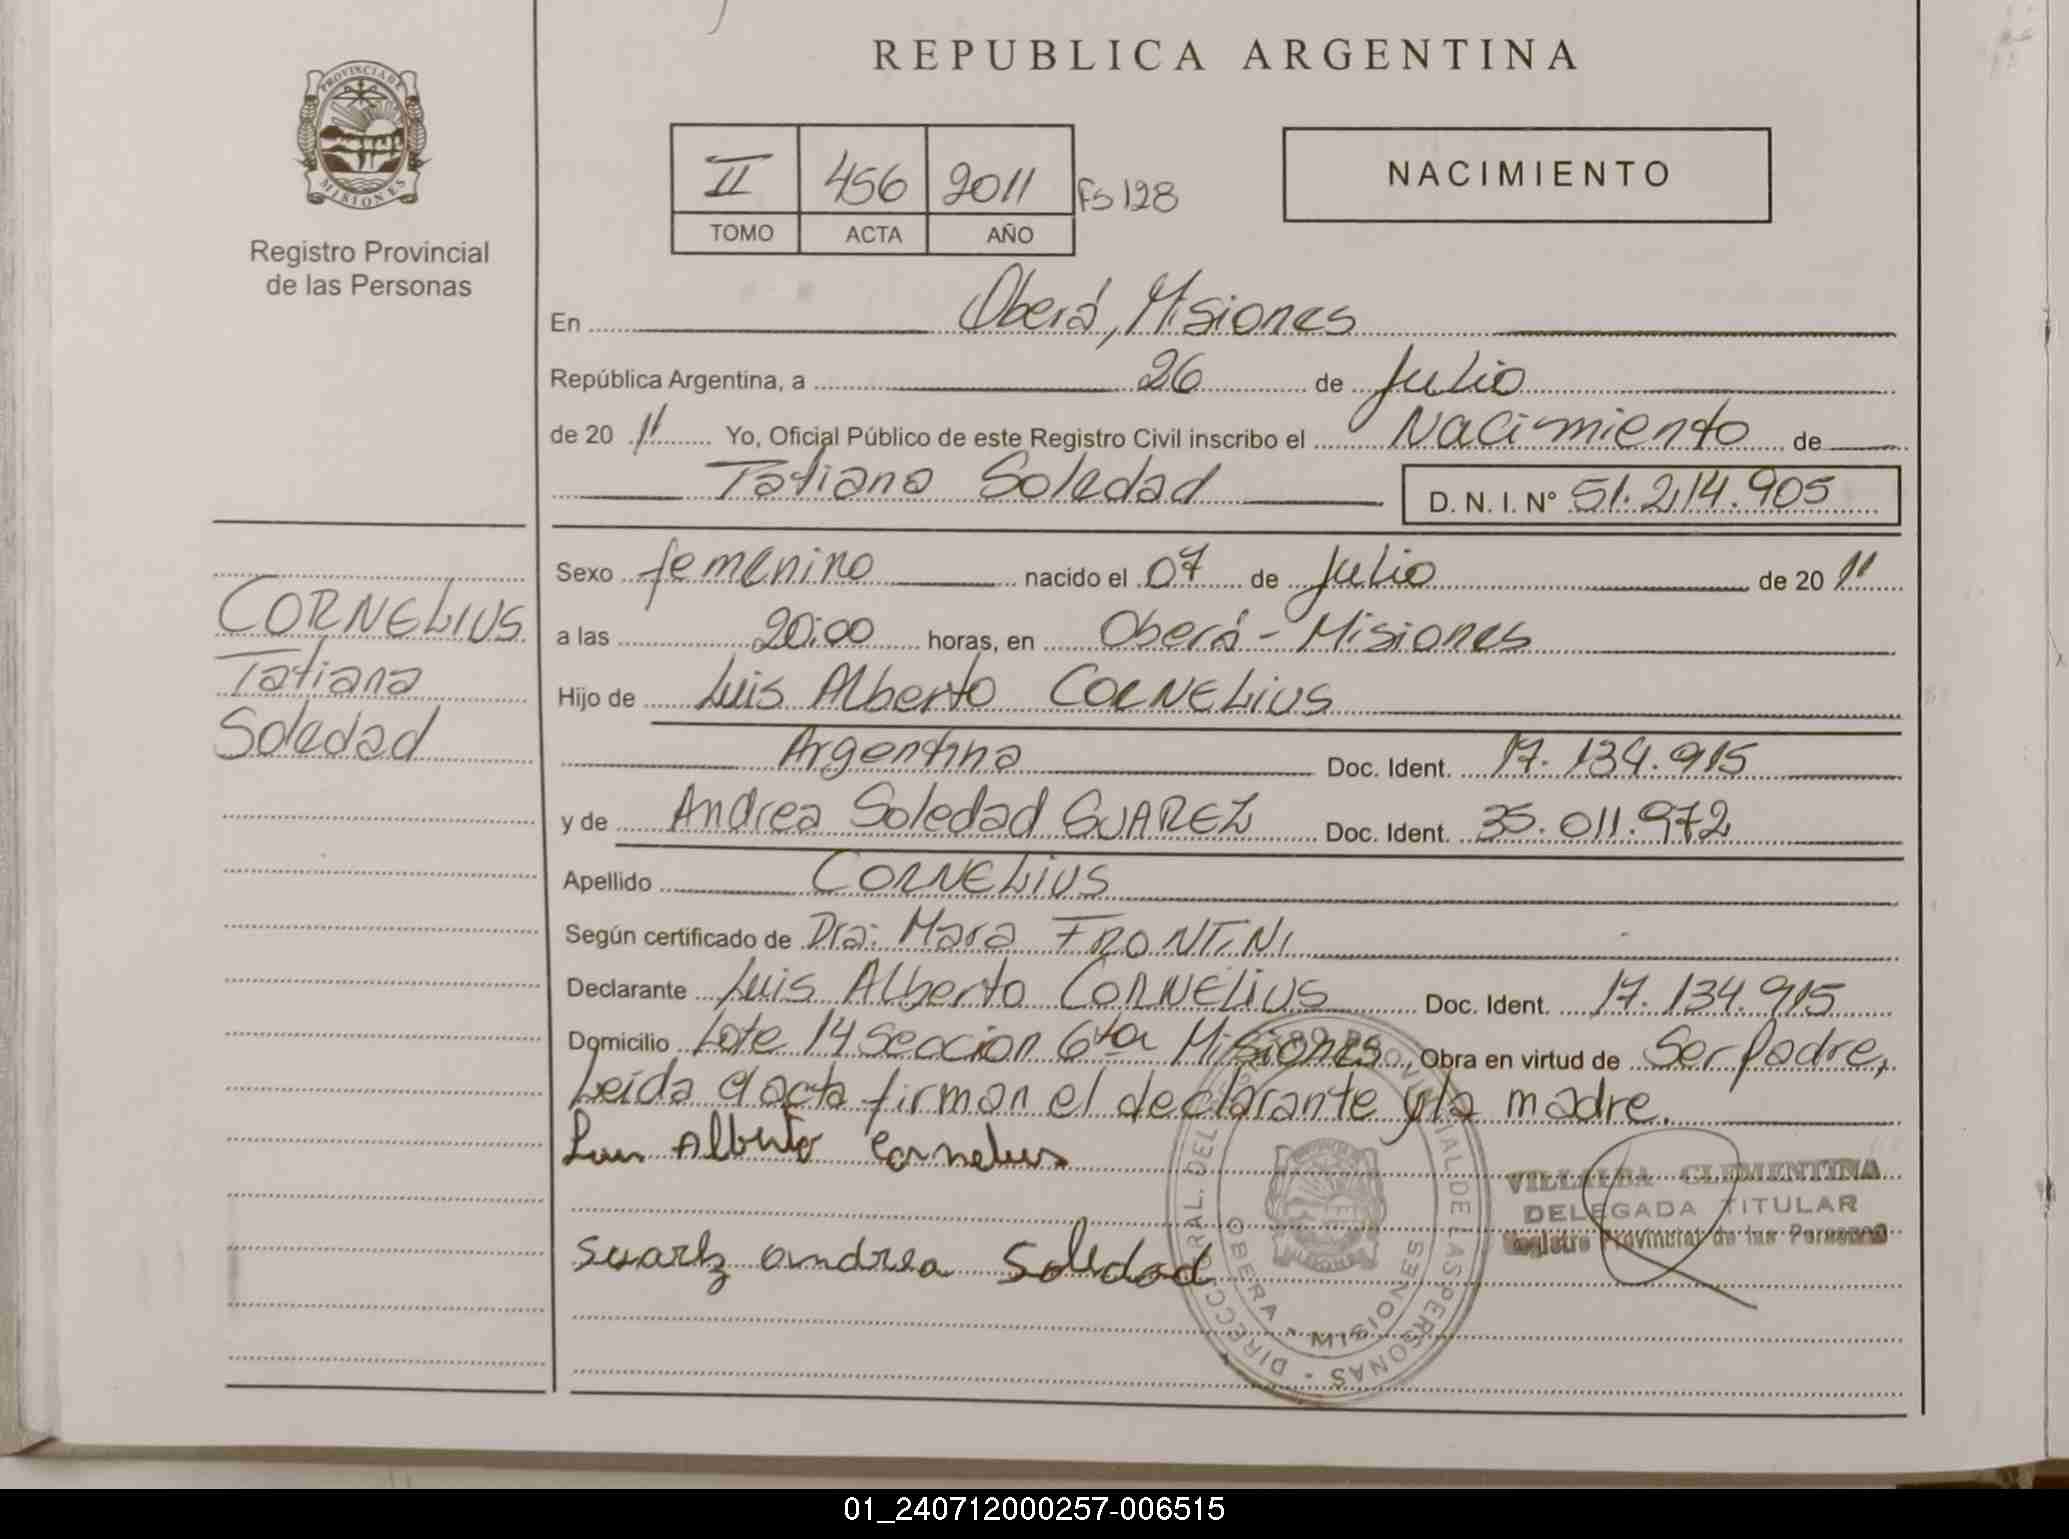 REPUBLICA ARGENTINA
PROVINCIA DE
MISIONES
Registro Provincial
de las Personas
II 456 2011 Fs 128
TOMO ACTA AÑO
NACIMIENTO
En Oberá, Misiones
República Argentina, a 26 de Julio
de 20 11 Yo, Oficial Público de este Registro Civil inscribo el Nacimiento de
Tatiana Soledad D. N. I. Nº 51.214.905
CORNELIUS
Tatiana
Soledad
Sexo femenino nacido el 07 de Julio de 20 11
a las 20:00 horas, en Oberá - Misiones
Hijo de Luis Alberto CORNELIUS
Argentina Doc. Ident. 17.134.915
y de Andrea Soledad SUAREZ Doc. Ident. 35.011.972
Apellido CORNELIUS
Según certificado de Dra: Mara FRONTINI
Declarante Luis Alberto CORNELIUS Doc. Ident. 17.134.915
Domicilio Lote 14 Seccion 6ta Misiones, Obra en virtud de Ser Padre,
Leída el acta firman el declarante y la madre.
Luis Alberto Cornelius
VILLALBA CLEMENTINA
DELEGADA TITULAR
Registro Provincial de las Personas
Suarez andrea Soledad
OBERA - MISIONES
01_240712000257-006515